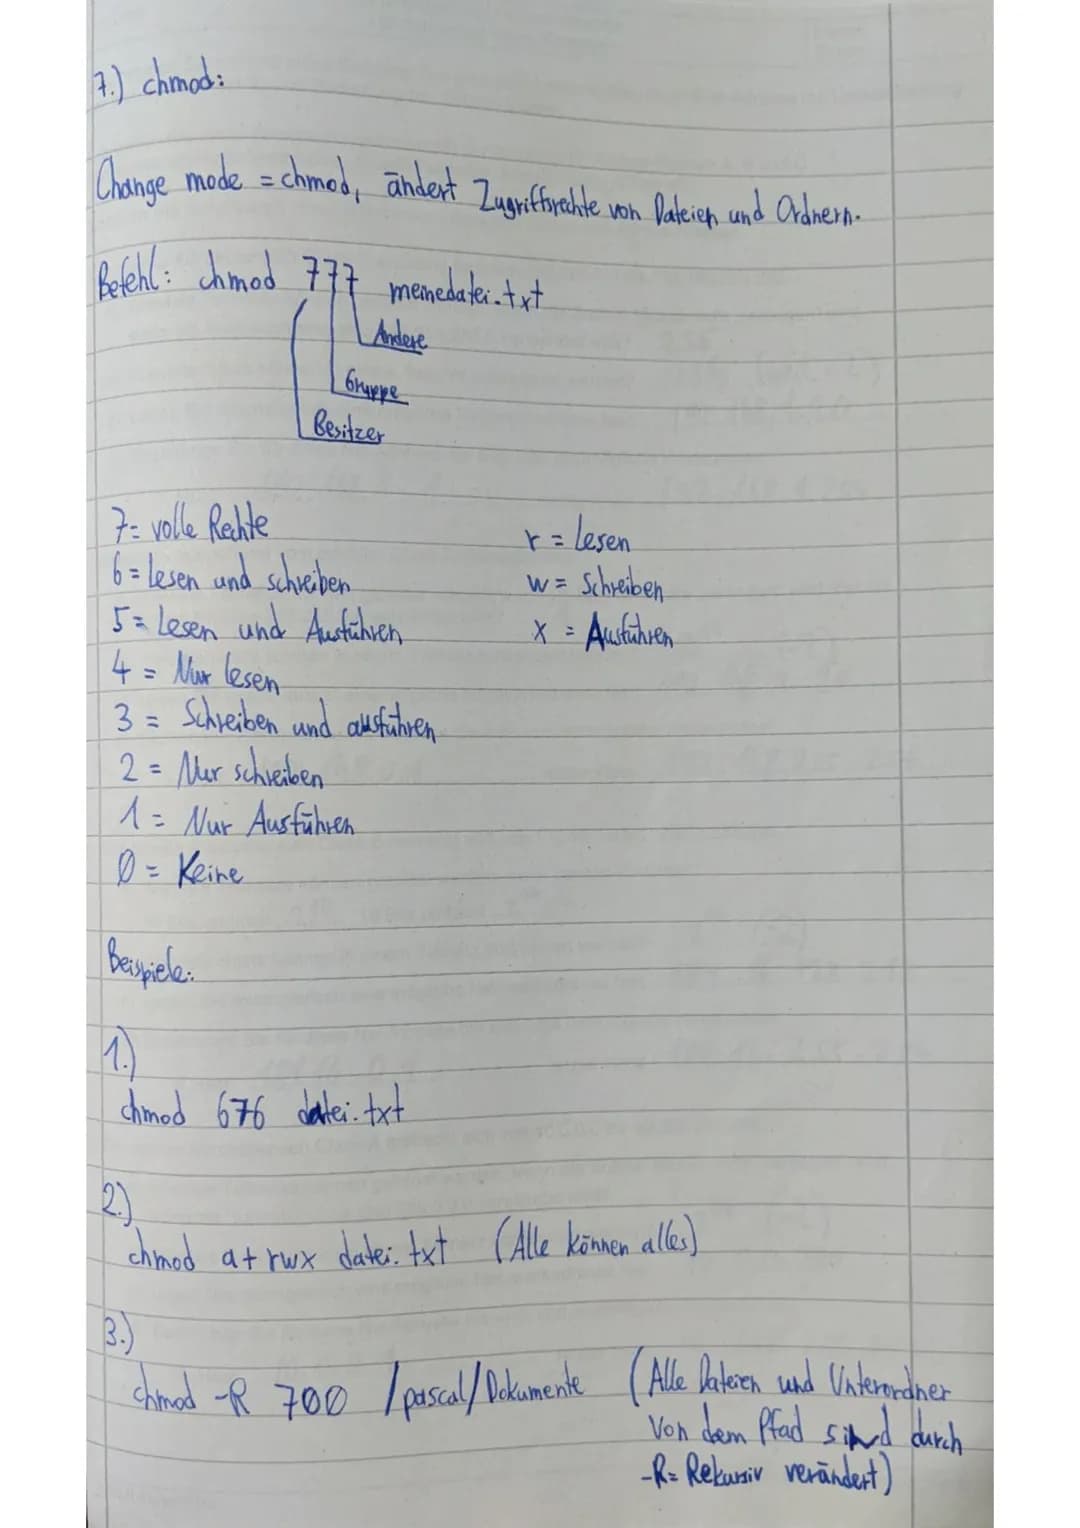 7.) chmod:
Change mode = chmod, ändert Zugriffsrechte von Dateien und Ordnern.
Befehl: chmod 777 meinedatei.txt
Andere
Gruppe
Besitzer
7= volle Rechte
6= lesen und schreiben
5= Lesen und Ausführen
4 = Nur lesen
3 = Schreiben und ausführen
2 = Nur schreiben
1 = Nur Ausführen
0 = Keine
r = Lesen
w = Schreiben
x = Ausführen
Beispiele:
1.)
chmod 676 datei.txt
2.)
chmod a+rwx datei.txt (Alle können alles)
3.)
chmod -R 700 /pascal/Dokumente (Alle Dateien und Unterordner
von dem Pfad sind durch
-R= Rekursiv verändert)